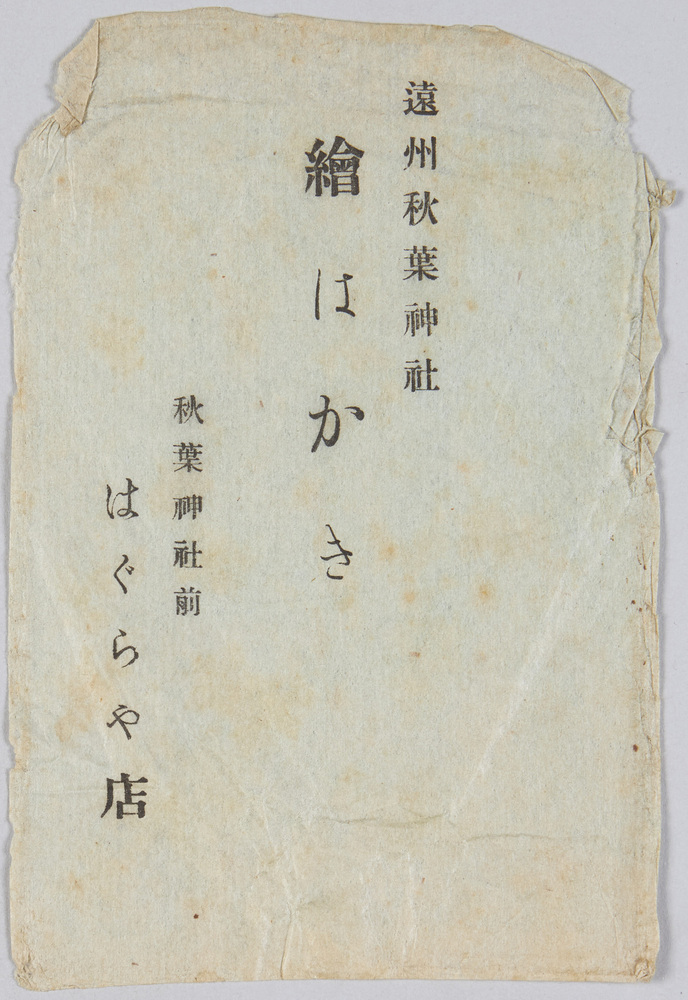 遠州秋葉神社
繪はかき
秋葉神社前
はぐらや店